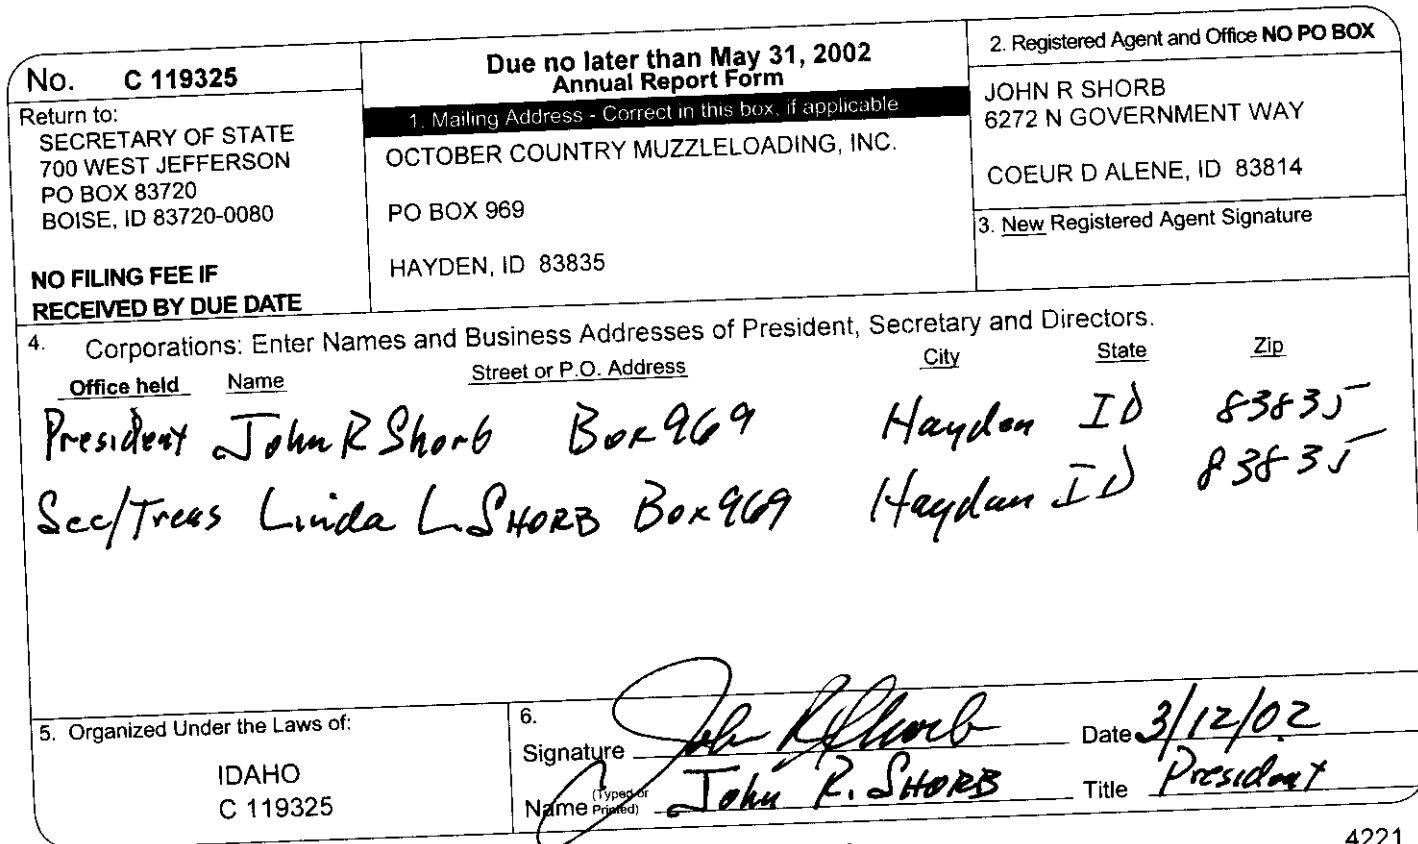 No. C 119325
Return to:
SECRETARY OF STATE
700 WEST JEFFERSON
PO BOX 83720
BOISE, ID 83720-0080
NO FILING FEE IF
RECEIVED BY DUE DATE
Due no later than May 31, 2002
Annual Report Form
1. Mailing Address - Correct in this box, if applicable
OCTOBER COUNTRY MUZZLELOADING, INC.
PO BOX 969
HAYDEN, ID 83835
2. Registered Agent and Office NO PO BOX
JOHN R SHORB
6272 N GOVERNMENT WAY
COEUR D ALENE, ID 83814
3. New Registered Agent Signature
4. Corporations: Enter Names and Business Addresses of President, Secretary and Directors.
Office held Name Street or P.O. Address City State Zip
President John R Shorb Box 969 Hayden ID 83835
Sec/Treas Linda L. SHORB Box 969 Hayden ID 83835
5. Organized Under the Laws of:
IDAHO
C 119325
6.
Signature John R Shorb Date 3/12/02
Name (Typed or Printed) John R. SHORB Title President
4221